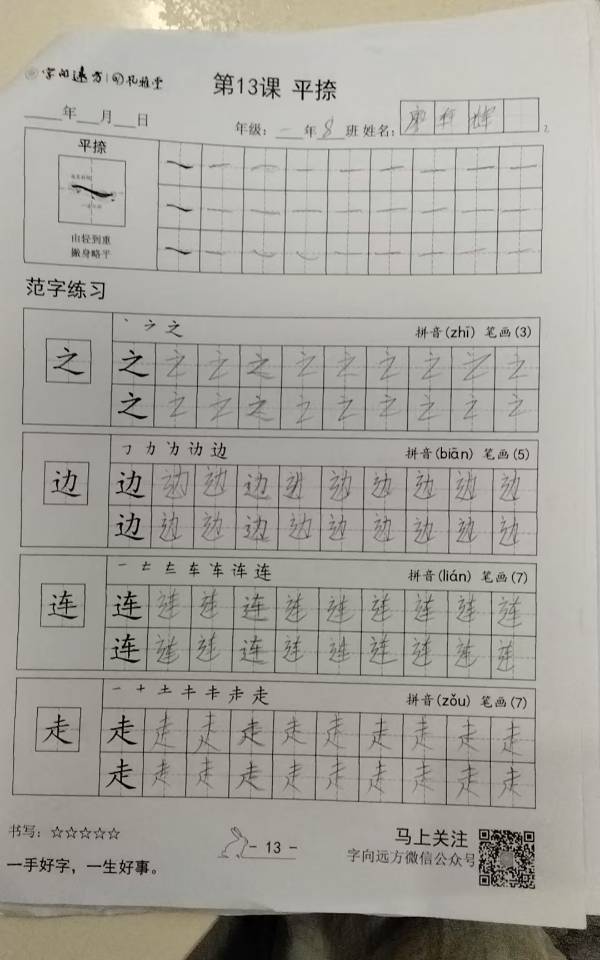 字向远方
第13课 平捺
年 月 日
年级： 一 年 8 班 姓名：
平捺
由轻到重
撇身略平
范字练习
丶 ㇇ 之 拼音(zhī) 笔画(3)
之 之 之 之 之 之 之 之 之 之 之
之 之 之 之 之 之 之 之 之 之
㇆ 力 边 拼音(biān) 笔画(5)
边 边 边 边 边 边 边 边 边 边 边
边 边 边 边 边 边 边 边 边 边
一 车 车 连 拼音(lián) 笔画(7)
连 连 连 连 连 连 连 连 连 连 连
连 连 连 连 连 连 连 连 连 连
一 十 土 走 走 拼音(zǒu) 笔画(7)
走 走 走 走 走 走 走 走 走 走 走
走 走 走 走 走 走 走 走 走 走
书写：☆☆☆☆☆
- 13 -
马上关注
一手好字，一生好事。
字向远方微信公众号